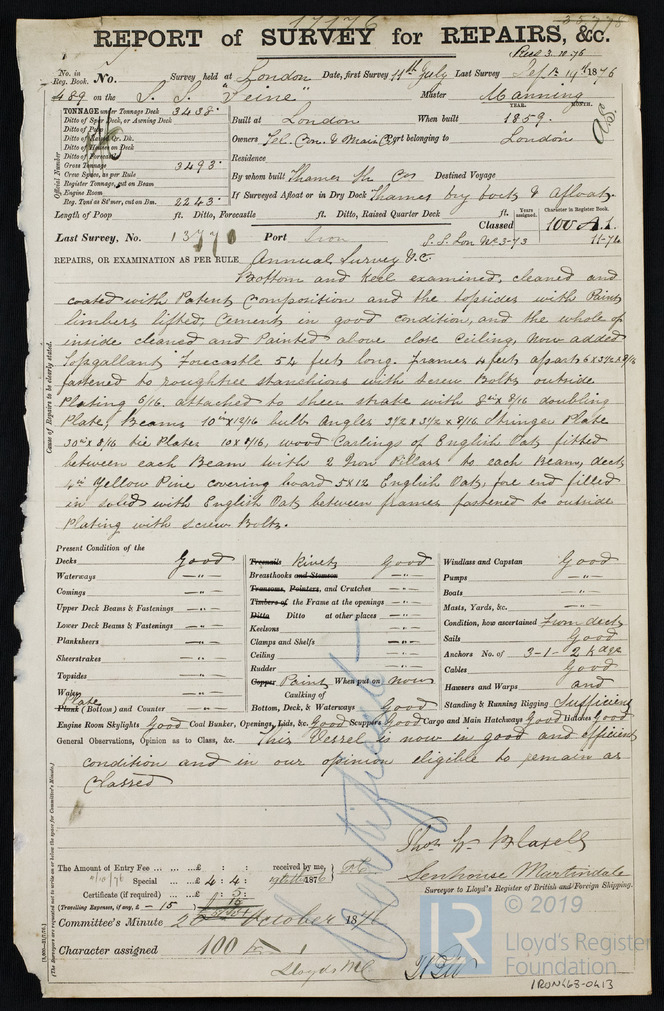 17176
REPORT of SURVEY for REPAIRS, &c.
Recd 3.10.76
No. in Reg. Book. No. Survey held at London Date, first Survey 11th July Last Survey Sept 19th 1876
489 on the S. S. "Seine" Master Manning
TONNAGE under Tonnage Deck 3438.
Ditto of Spar Deck, or Awning Deck
Ditto of Poop
Ditto of Raised Qr. Dk.
Ditto of Houses on Deck
Ditto of Forecastle
Gross Tonnage 3493.
Crew Space, as per Rule
Register Tonnage, cut on Beam
Engine Room
Reg. Tons as St'mer, cut on Bm. 2243.
Official Number
Built at London When built YEAR. 1859. MONTH.
Owners Tel. Con. & Main Co Port belonging to London
Residence
By whom built Thames Co Destined Voyage
If Surveyed Afloat or in Dry Dock Thames Dry Dock & afloat
Length of Poop ft. Ditto, Forecastle ft. Ditto, Raised Quarter Deck ft. Years assigned. Character in Register Book.
Classed 100 A.1.
Last Survey, No. 13770 Port Iron S.S. Lon No. 3-73 11-74
REPAIRS, OR EXAMINATION AS PER RULE, Annual Survey V.C.
Bottom and Keel examined, cleaned and
coated with Patent Composition and the topsides with Paint
limbers lifted, Cement in good condition, and the whole of
inside cleaned and Painted above close Ceiling, Now added
Topgallant Forecastle 54 feet long. Frames 4 feet apart 6 x 3½ x 8/16
fastened to roughtree stanchions with Screw Bolts outside
Plating 6/16. attached to sheer strake with 8in x 8/16 doubling
Plate, Beams 10in x 12/16 bulb Angles 3½ x 3½ x 8/16 Stringer Plate
30in x 8/16 tie Plates 10 x 8/16, wood Carlings of English Oak fitted
between each Beam with 2 Iron Pillars to each Beam, deck
4in Yellow Pine covering board 5 x 12 English Oak, fore end filled
in solid with English Oak between frames fastened to outside
Plating with screw Bolts.
Cause of Repairs to be clearly stated.
Present Condition of the
Decks Good
Waterways -"-
Comings -"-
Upper Deck Beams & Fastenings -"-
Lower Deck Beams & Fastenings -"-
Planksheers -"-
Sheerstrakes -"-
Topsides -"-
Wales -"-
Plate
Plank (Bottom) and Counter -"-
Treenails Rivets Good
Breasthooks and Stemson -"-
Transoms, Pointers, and Crutches -"-
Timbers of the Frame at the openings -"-
Ditto Ditto at other places -"-
Keelsons -"-
Clamps and Shelfs -"-
Ceiling -"-
Rudder -"-
Copper Paint When put on now
Caulking of
Bottom, Deck, & Waterways Good
Windlass and Capstan Good
Pumps -"-
Boats -"-
Masts, Yards, &c. -"-
Condition, how ascertained From deck
Sails Good
Anchors No. of 3-1-2 Kedge
Cables Good
Hawsers and Warps and
Standing & Running Rigging Sufficient
Engine Room Skylights Good Coal Bunker, Openings, Lids, &c. Good Scuppers Good Cargo and Main Hatchways Good Hatches Good
General Observations, Opinion as to Class, &c. This Vessel is now in good and efficient
condition and in our opinion eligible to remain as
Classed
Certificate
Thos W Blaxell
Senhouse Martindale
Surveyor to Lloyd's Register of British and Foreign Shipping.
The Amount of Entry Fee ... £ : : received by me,
Special ... £ 4 : 4 : 1876
Certificate (if required) ... £ : 5 :
(Travelling Expenses, if any, £ 15 )
Committee's Minute 20 October 1876
Character assigned 100 A 1
Lloyds MC
(The Surveyors are requested not to write on or below the space for Committee's Minute.)
© 2019
LR
Lloyd's Register
Foundation
IRON468-0413